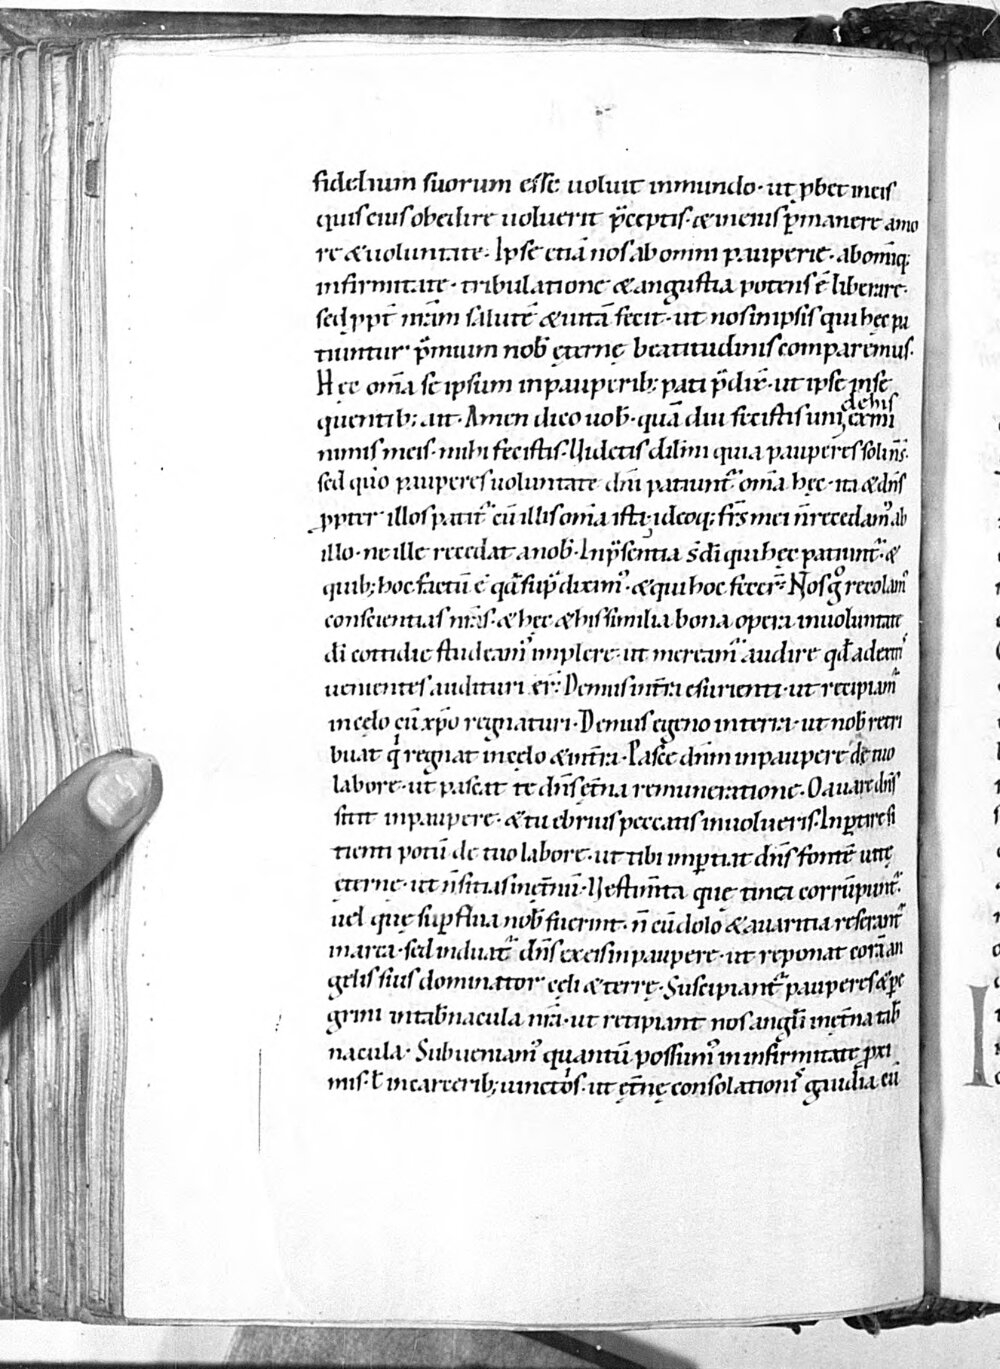 fidelium suorum esse uoluit inmundo · ut ꝓbet in eis
quis eius obedire uoluerit p̄ceptis · & in eius ꝑmanere amo
re & uoluntate · Ipse etiā nos ab omni pauperie · ab omīq;
infirmitate · tribulatione & angustia potens ē liberare ·
sed ꝓpt̄ nr̄am salutē & uitā fecit · ut nos in ipsis qui hęc pa
tiuntur p̄mium nob̄ ęternę beatitudinis comparemus ·
Hęc om̄a se ipsum in pauperib; pati p̄dix̄ · ut ipse in se
quentib; ait · Amen dico uob̄ · quādiu fecistis uni de his ex mi
nimis meis · mihi fecistis · Uidetis dil̄mi quia pauperes soli n̄ s̄ ·
sed quo pauperes uoluntate dn̄i patiunt᷑ om̄a hęc · ita & dn̄s
ꝓpter illos patit᷑ cū illis om̄ia ista · ideoq; fr̄s mei n̄ recedam᷒ ab
illo · ne ille recedat a nob̄ · In p̄sentia s̄ dī qui hęc patiunt᷑ · &
quib; hoc factū ē qđ sup̄ dixim᷒ · & qui hoc fecer̄ · Nos gͦ recolam᷒
conscientias nr̄as · & hęc & his similia bona opera in uoluntate
dī cottidie studeam᷒ implere · ut meream᷑ audire qđ ad dexterā
uenientes audituri er̄ · Demus in t̄ra esurienti · ut recipiam᷒
in cęlo cū xp̄o regnaturi · Demus egeno in terra · ut nob̄ retri
buat qͥ regnat in cęlo & in t̄ra · Pasce dn̄m in paupere de tuo
labore · ut pascat te dn̄s et̄na remuneratione · O auare dn̄s
sitit in paupere · & tu ebrius peccatis inuolueris · Inꝑtire si
tienti potū de tuo labore · ut tibi imꝑtiat dn̄s fontē uitę
ęterne · ut n̄ sitias in et̄nū · Uestim̄ta quę tinea corrūpunt᷑ ·
uel quę suꝑflua nob̄ fuerint · n̄ cū dolo & auaritia reserant᷑
in arca · sed induat᷑ dn̄s ex eis in paupere · ut reponat corā an
gelis suis dominator cęli & terrę · Suscipiant᷑ pauperes & pe
grini in tab̄nacula nr̄a · ut recipiant nos angl̄i in et̄na tab̄
nacula · Subueniam᷒ quantū possum᷒ in infirmitate ꝓxi
mis · ł in carcerib; uinctos · ut et̄nę consolationis gaudia cū